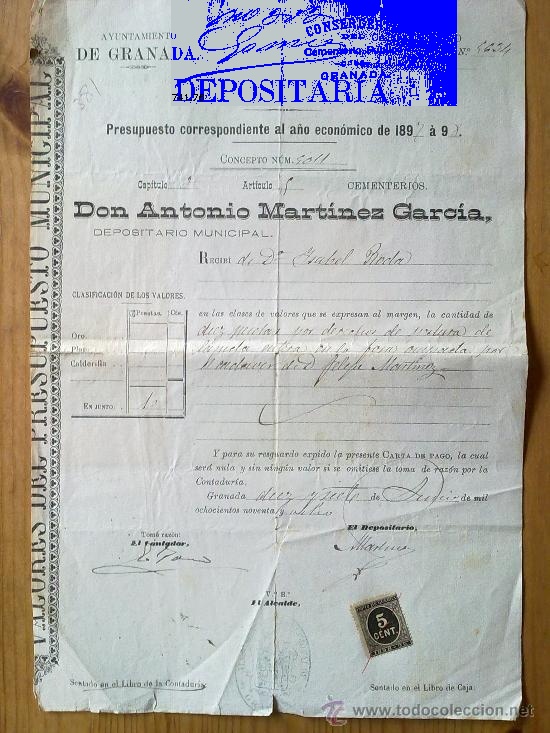 AYUNTAMIENTO
DE GRANADA.
CONSERJE
DEL
Cementerio
GRANADA
N.º 9634
DEPOSITARIA
Presupuesto correspondiente al año económico de 1897 á 98.
CONCEPTO NÚM. 9011
Capítulo Artículo 5 CEMENTERIOS.
Don Antonio Martínez García,
DEPOSITARIO MUNICIPAL.
RECIBÍ de Dª Isabel Roda
CLASIFICACIÓN DE LOS VALORES.
Pesetas. Cts.
Oro
Pla
Calderilla
EN JUNTO. 10
en las clases de valores que se expresan al margen, la cantidad de
diez pesetas por derechos de de
en la fosa ocupada por
el cadaver de D Felipe Martinez
Y para su resguardo expido la presente CARTA DE PAGO, la cual
será nula y sin ningún valor si se omitiese la toma de razón por la
Contaduría.
Granada diez y siete de de mil
ochocientos noventa y ocho
Tomé razón:
El Contador,
El Depositario,
Martinez
V.º B.º
El Alcalde,
5
CENT.
Sentado en el Libro de la Contaduría
Sentado en el Libro de Caja:
VALORES DEL PRESUPUESTO MUNICIPAL
todocoleccion.net